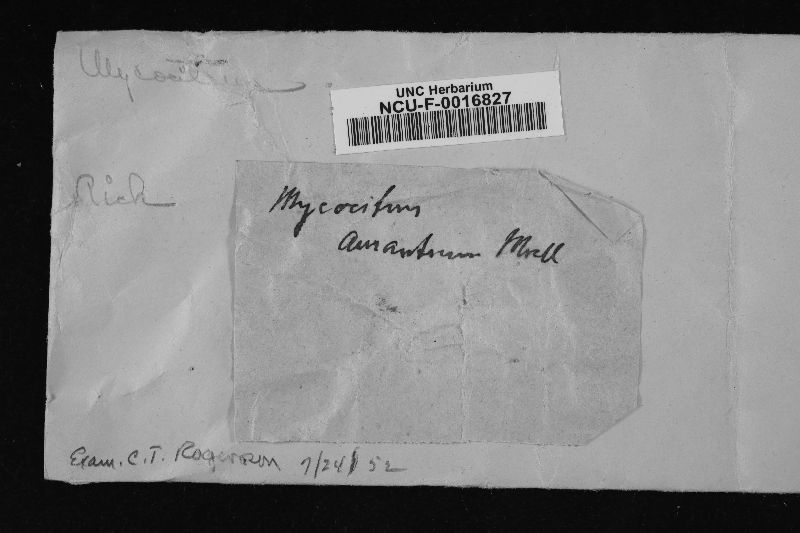 Mycocitrus
UNC Herbarium
NCU-F-0016827
Rick
Mycocitrus
aurantium Moell
Exam. C. T. Rogerson 7/24/52